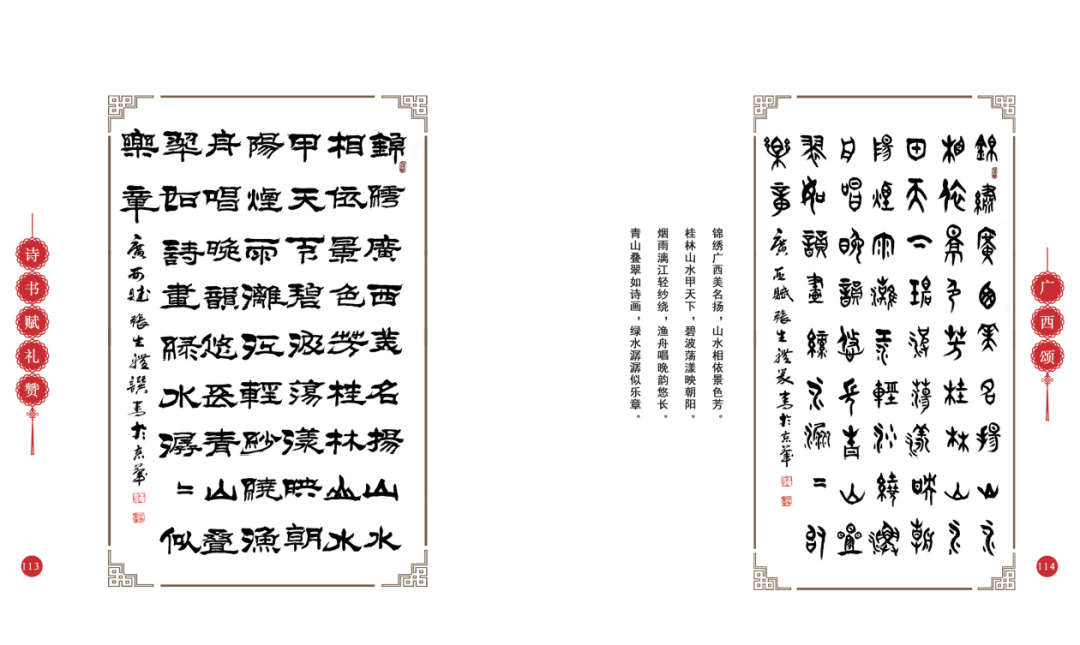 诗书赋礼赞
113
錦繡廣西美名揚山水
相依景色芳桂林山水
甲天下碧波蕩漾映朝
陽煙雨灕江輕紗繞漁
舟唱晚韻悠長青山叠
翠如詩畫綠水潺=似
樂章
廣西賦張生禮撰書於京華
锦绣广西美名扬，山水相依景色芳。
桂林山水甲天下，碧波荡漾映朝阳。
烟雨漓江轻纱绕，渔舟唱晚韵悠长。
青山叠翠如诗画，绿水潺潺似乐章。
錦繡廣西美名揚山水
相依景色芳桂林山水
甲天下碧波蕩漾映朝
陽煙雨灕江輕紗繞漁
舟唱晚韻悠長青山疊
翠如韻畫綠水潺=似
樂章
廣西賦張生禮篆書於京華
广西颂
114